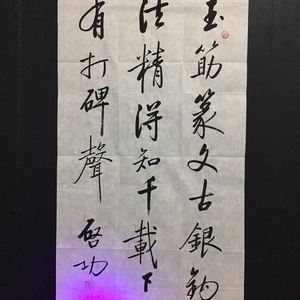 玉筯篆文古銀鉤
法精得知千載下
有打碑聲 啓功